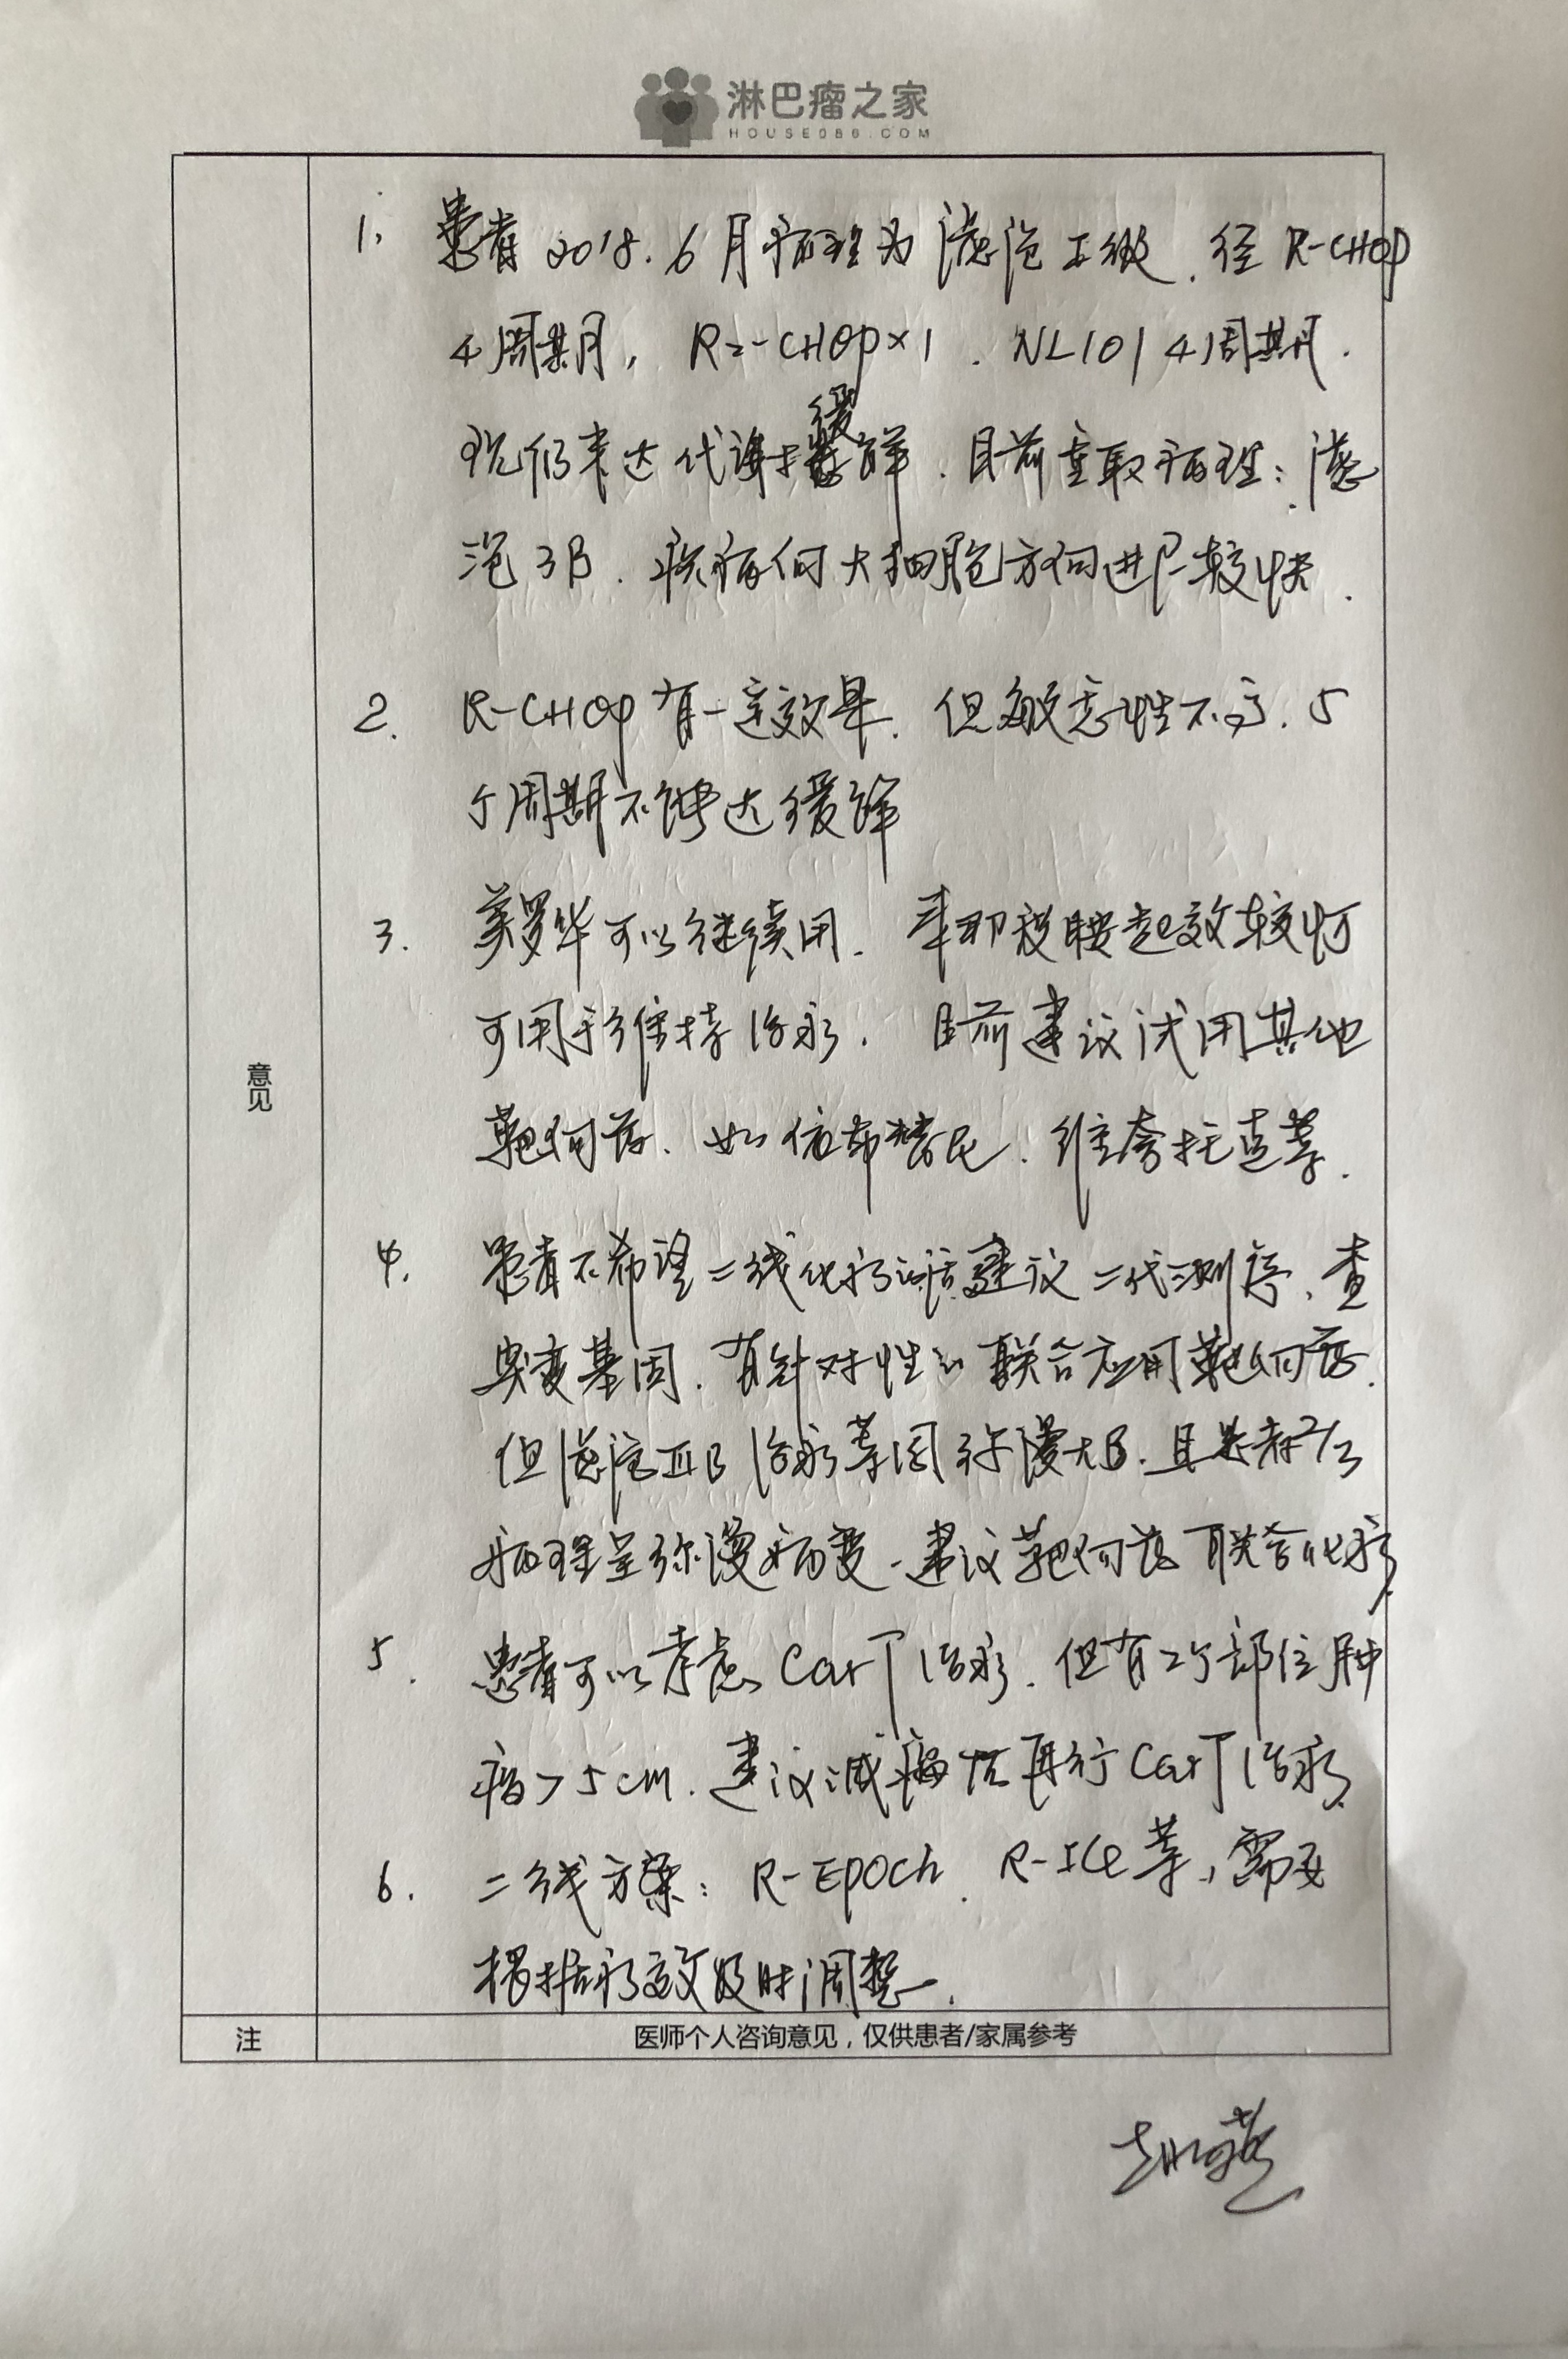 淋巴瘤之家
HOUSE086.COM
意见
1. 患者2018.6月病理为滤泡Ⅱ级.经R-CHOP
4周期,R2-CHOP×1.NL101 4周期.
现仍未达代谢缓解.目前重取病理:滤
泡3B.疾病向大细胞方向进展较快.
2. R-CHOP有一定效果.但敏感性不高.5
个周期不能达缓解
3. 美罗华可以继续用.来那度胺起效较慢
可用于维持治疗.目前建议试用其他
靶向药.如依布替尼.维奈托克等.
4. 患者不希望二线化疗的话建议二代测序、查
突变基因.有针对性的联合应用靶向药.
但滤泡ⅢB治疗等同弥漫大B.且患者2/3
病理呈弥漫病变.建议靶向药联合化疗
5. 患者可以考虑CarT治疗.但有2个部位肿
瘤>5cm.建议减瘤后再行CarT治疗
6. 二线方案:R-EPOCh.R-ICE等,需要
根据疗效及时调整.
注 医师个人咨询意见,仅供患者/家属参考